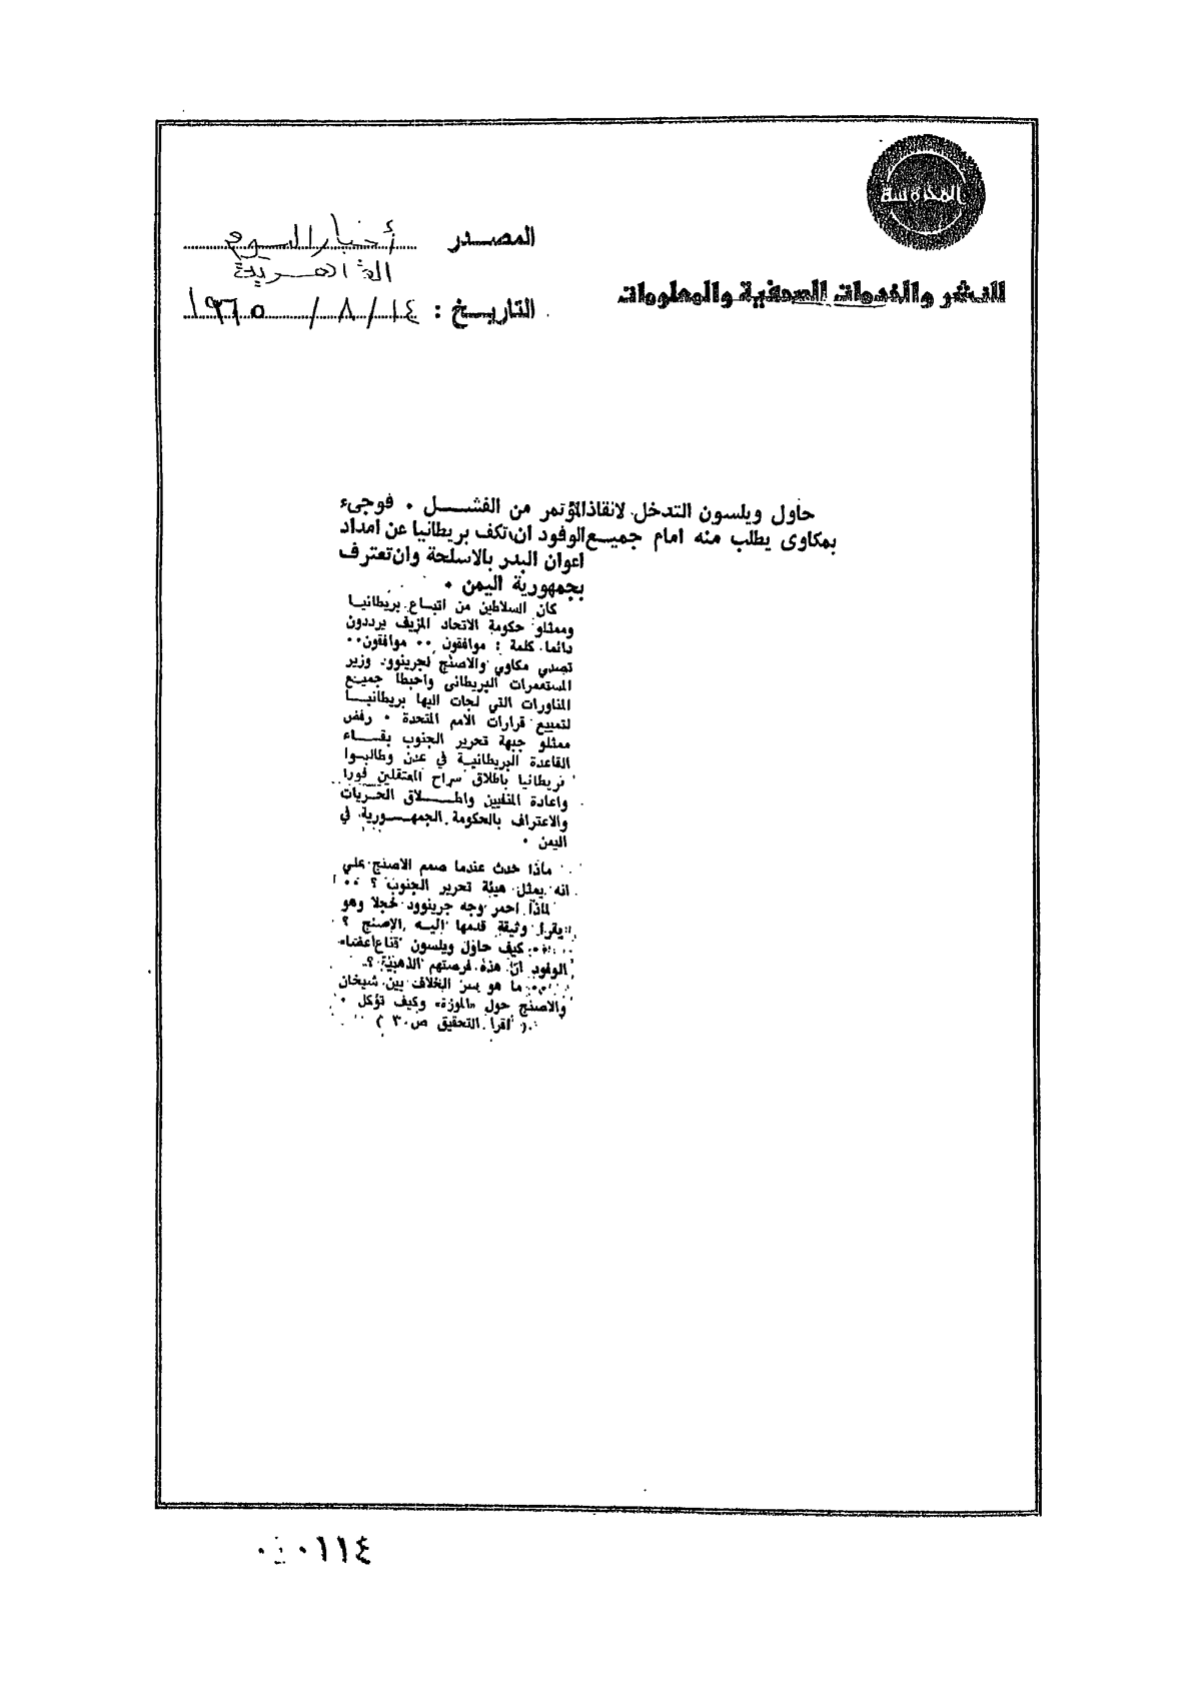 المحروسة
للنشر والخدمات الصحفية والمعلومات
المصدر أخبار اليوم
التاريخ : ١٤ / ٨ / ١٩٦٥
حاول ويلسون التدخل لانقاذ المؤتمر من الفشل . فوجىء
بمكاوى يطلب منه امام جميع الوفود ان تكف بريطانيا عن امداد
اعوان البدر بالاسلحة وان تعترف
بجمهورية اليمن .
كان السلاطين من اتباع بريطانيا
وممثلو حكومة الاتحاد المزيف يرددون
دائما كلمة : موافقون .. موافقون ..
تصدي مكاوي والاصنج لجرينوود وزير
المستعمرات البريطانى واحبطا جميع
المناورات التي لجات اليها بريطانيا
لتمييع قرارات الامم المتحدة . رفض
ممثلو جبهة تحرير الجنوب بقاء
القاعدة البريطانية في عدن وطالبوا
بريطانيا باطلاق سراح المعتقلين فورا
واعادة المنفيين واطلاق الحريات
والاعتراف بالحكومة الجمهورية في
اليمن .
ماذا حدث عندما صمم الاصنج علي
انه يمثل هيئة تحرير الجنوب ؟ ..
لماذا احمر وجه جرينوود خجلا وهو
يقرا وثيقة قدمها اليه الاصنج ؟
كيف حاول ويلسون اقناع اعضاء
الوفود ان هذه فرصتهم الذهبية ؟
ما هو سر الخلاف بين شيخان
والاصنج حول «الموزة» وكيف تؤكل .
( اقرا التحقيق ص ٣ )
٠٠٠١١٤